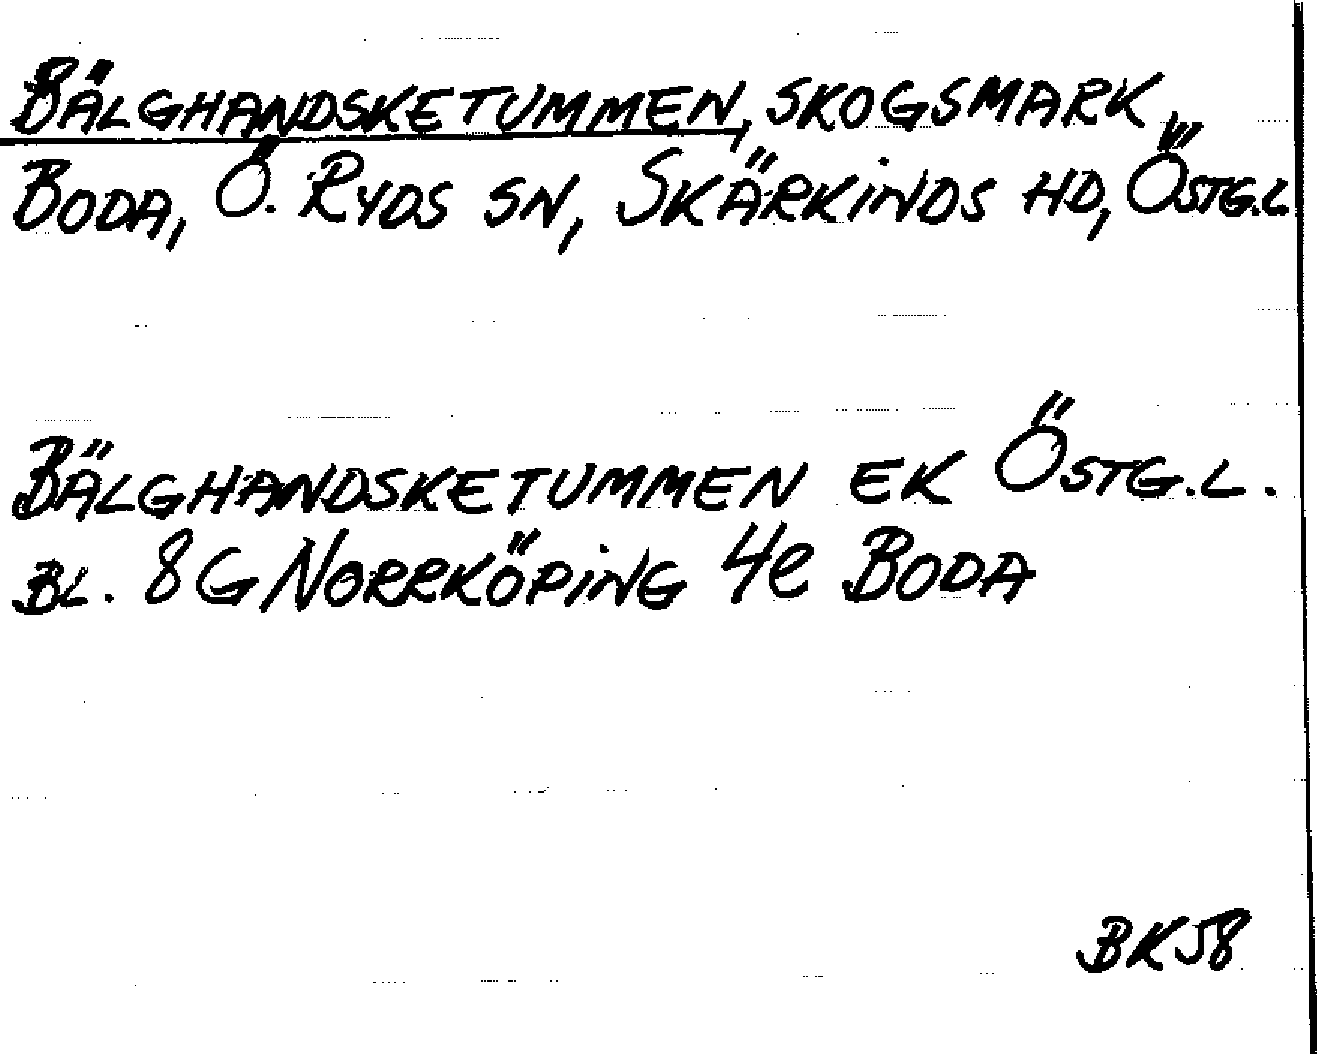 BÄLGHANDSKETUMMEN, SKOGSMARK
BODA, Ö. RYDS SN, SKÄRKINDS HD, ÖSTG.L
BÄLGHANDSKETUMMEN EK ÖSTG.L.
BL. 8G NORRKÖPING 4e BODA
BK58